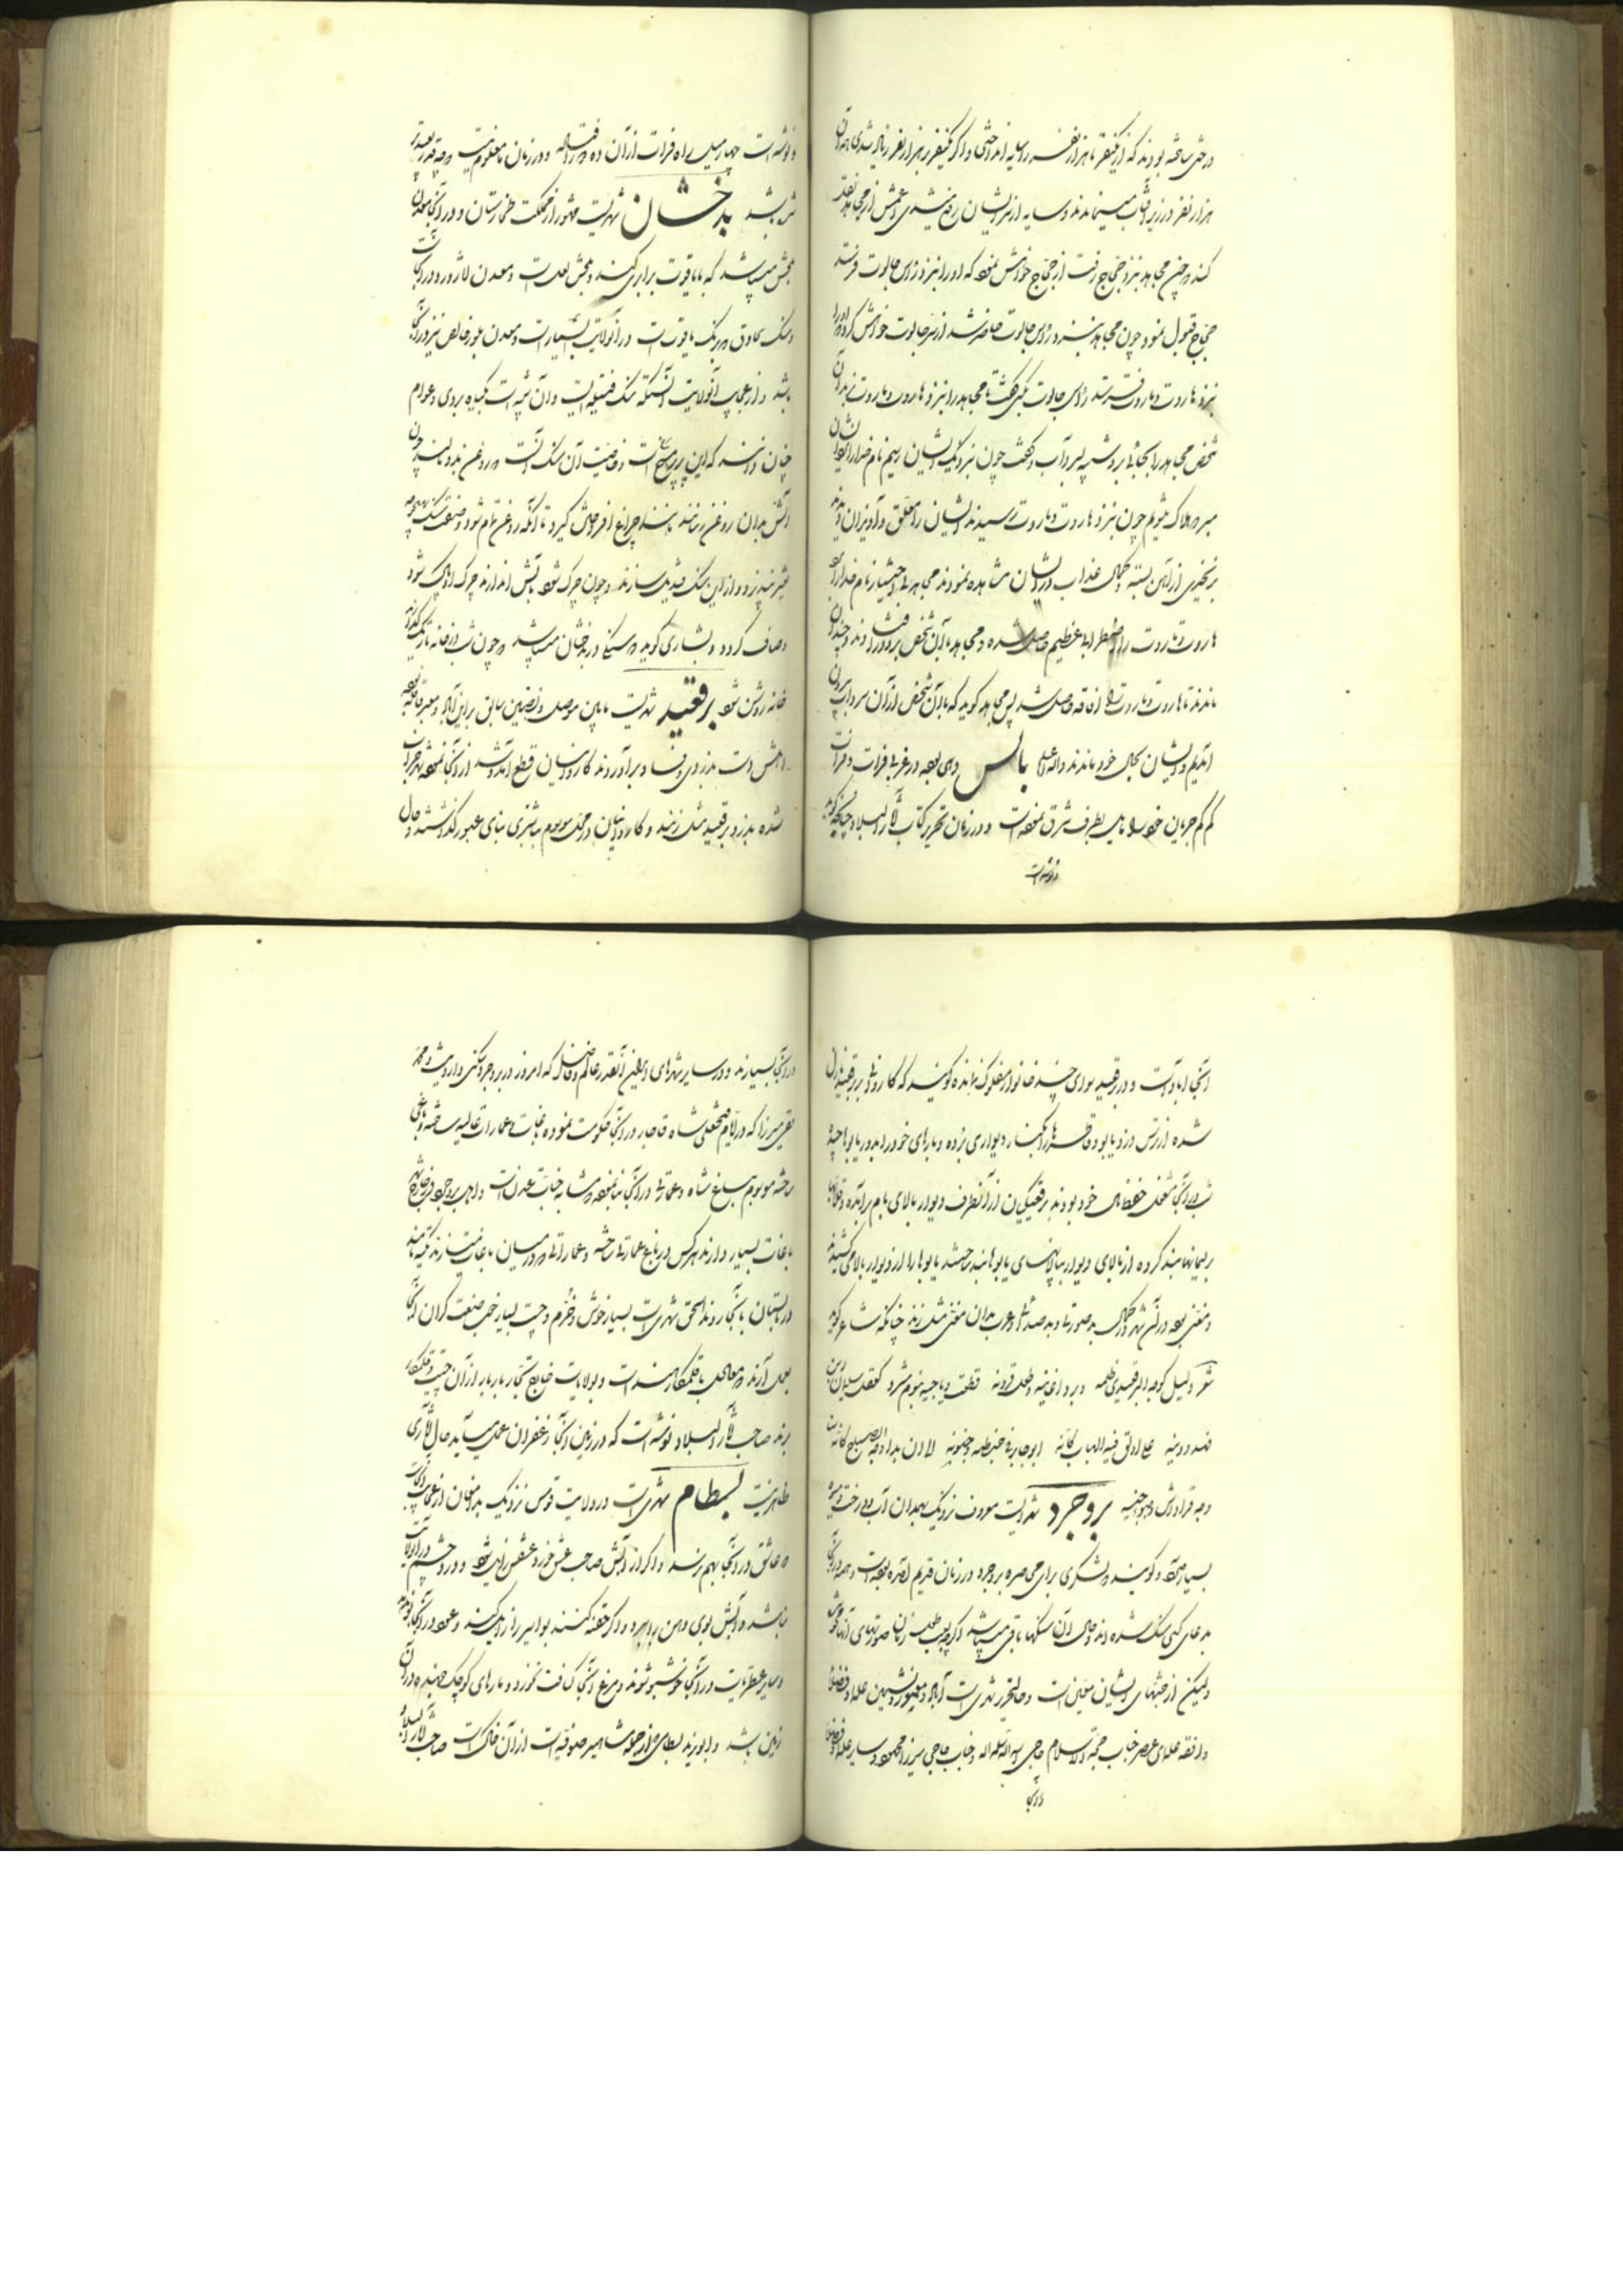 درختی ساخته بودند که از یکنفر تا هزار نفر سایه انداختی و اگر یکنفر از هزار نفر زیاد شدی همه آن
هزار نفر در زیر آفتاب میماندند و سایه از سر ایشان رفع میشدی و اعمش از مجاهد نقل
کند که چون مجاهد نزد حجاج رفت از حجاج خواهش نمود که او را نزد رأس جالوت فرستد
حجاج قبول نمود چون مجاهد نزد رأس جالوت حاضر شد از سر جالوت خواهش کرد که او را
نزد هاروت و ماروت فرستد رأس جالوت بیکی گفت تا مجاهد را نزد هاروت و ماروت برد آن
شخص مجاهد را بجائی برد شبیه بسرداب و گفت چون نزدیک ایشان رسیم نام خدا را
مبر که هلاک شویم چون نزد هاروت و ماروت رسیدند ایشان را معلق و آویزان دیدند
بزنجیری از آهن بسته و بحال عذاب در ایشان مشاهده نمودند مجاهد بی اختیار نام خدا را
هاروت و ماروت را اضطرابی عظیم حاصل شده و مجاهد با آن شخص برو در افتادند و چندان
ماندند تا هاروت و ماروت را افاقه حاصل شد پس مجاهد گوید که با آن شخص از آن سرداب بیرون
آمدیم و ایشان بحال خود ماندند والله اعلم بالس دهی بود در غربی فرات و فرات
کم کم جریان خود را مایل بطرف شرق نموده است و در زمان تحریر کتاب آثار البلاد چنانچه گوید
نوشته است
و نوشته است چهار میل راه فرات از آن ده دور افتاده و در زمان ما معلوم نیست که چه قدر بعد
شده باشد بدخشان شهریست مشهور از مملکت طخارستان و در آنجا معدن
بجش میباشد که با یاقوت برابری کند و بجش لعل است و معدن لاژورد در آنجاست
و سنگ بیجادق که برنگ یاقوت است در آنولایت بسیار است و معدن بلور خالص نیز در آنجا
باشد و از عجایب آنولایت آنستکه سنگ فتیله ایست و آن شبیه است بگیاه بردی و عوام
چنان دانند که این پر مرغ است و خاصیت آن سنگ آنست که روغن بدو مالند چون
آتش بدان روغن رسانند مانند چراغ افروختن گیرد تا آنکه روغن تمام شود و سنگ بهیچوجه
تغییر نپذیرد و از این سنگ مندیل سازند و چون چرک شود بآتش اندازند چرک او پاک شود
و صاف گردد و بشاری گوید که سنگی در بدخشان میباشد که چون شب در خانه تاریک گذارند
خانه روشن شود برقعید شهریست مابین موصل و نصیبین سابق بر این آباد و معبر قافله بود
اهلش دست بدزدی و فساد برآوردند کاروانیان قطع آمد و شد از آنجا نموده شهر خراب
شده بدزد برقعید مثل زنند و کاروانیان در محل موسوم بباشزی بنای عبور گذاشته و حال
آنجا آباد است و در برقعید سوای چند خانوار مفلوک نمانده گویند که کاروانی در برقعید نازل
شده از ترس دزد یابو و قاطرها را بکنار دیواری برده و بارهای خود را بدور یابوها چیده
شب در آنجا مشغول حفظ مال خود بودند برقعیدیان از آنطرف دیوار بالای بام برآمده و قلابها
بریسمانها بند کرده از بالای دیوار بپالانهای یابوها بند ساختند یابوها را از دیوار بالا می کشیدند
و مغنی بود در آن شهر در کمال بد صورتی و بد صدائی و عرب بدان مغنی مثل زنند چنانکه شاعر گوید
شعر ولیل کوجه البرقعیدی ظلمة وبرد اغانیه وطول قرونه قطعت دیاجیه بنوم مشرد کعقل سلیمان بن
فهد ودینه علی اولق فیه التهاب کأنه ابو جابر فی خبطه وجنونه الی ان بدا وجه الصباح کأنه سنا
وجه قرواش وضوء جبینه بروجرد شهریست معروف نزدیک بهمدان آب و درخت و میوه
بسیار دارد و گویند که لشگری برای محاصره بروجرد در زمان قدیم آمده بوده است و همه در آنجا
بدعای کسی سنگ شده اند و حال آن سنگها باقی میباشد اگرچه بسبب طول زمان صورتهای آنها محو
ولیکن از جثهای ایشان معین است و حال تحریر شهریست آباد و معمور و نشیمن علما و فضلا
و از فقه علمای عصر جناب حجة الاسلام حاجی سلمه الله و جناب حاجی میرزا محمود و سایر علما و فضلا
در آنجا
در آنجا بسیارند و در سایر شهرهای آنقدر عالم و فاضل که امروز در بروجرد سکنی دارد نیست و محمد
تقی میرزا که در ایام فتحعلی شاه قاجار در آنجا حکومت نموده باغات و عمارات عالیه ساخته و باغی
ساخته موسوم بباغ شاه و عمارتی در آنجا بنا نموده که مشابه جنات عدن است و اهل بروجرد در خارج شهر
باغات بسیار دارند هر کس در باغ عمارتی ساخته و عماراتی که در میان باغات میسازند تکیه نامند
در تابستان بآنجا روند الحق شهریست بسیار خوش و خرم و چیت بسیار خوب صنعت گران آنجا
بعمل آرند که معادل با قلمکار هند است و بولایات خارج تجار بار بار از آن چیت و قلمکار
برند صاحب آثار البلاد نوشته است که در زمین آنجا زعفران بعمل میآید حال آثاری
ظاهر نیست بسطام شهریست در ولایت قومس نزدیک بدامغان از عجایب آنجاست
که عاشق در آنجا بهم نرسد و اگر از آبش صاحب عشق خورد عشقش زایل شود و درد چشم در آنولایت
نباشد و آبش بوی دهن را ببرد و اگر حقنه کنند بواسیر را زایل کند و عود در آنجا بو ندهد
و سایر عطریات در آنجا خوشبو شوند و مرغ آنجا کثافت نخورد و مارهای کوچک جهنده در آن
زمین باشد و ابویزید بسطامی که از جمله مشاهیر صوفیه است از آن خاک است صاحب آثار البلاد